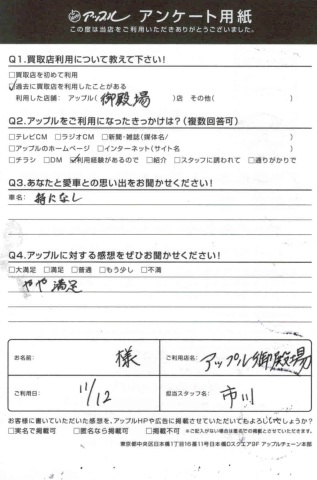 アップル アンケート用紙
この度は当店をご利用いただきありがとうございました。
Q1.買取店利用について教えて下さい!
□買取店を初めて利用
☑過去に買取店を利用したことがある
利用した店舗: アップル( 御殿場 )店 その他( )
Q2.アップルをご利用になったきっかけは?(複数回答可)
□テレビCM □ラジオCM □新聞・雑誌(媒体名/ )
□アップルのホームページ □インターネット(サイト名 )
□チラシ □DM ☑利用経験があるので □紹介 □スタッフに誘われて □通りがかりで
Q3.あなたと愛車との思い出をお聞かせください!
車名: 特になし
Q4.アップルに対する感想をぜひお聞かせください!
□大満足 □満足 □普通 □もう少し □不満
やや満足
お名前: 様
ご利用店名: アップル御殿場
ご利用日: 11/12
担当スタッフ名: 市川
お客様に書いていただいた感想を、アップルHPや広告に掲載させていただいてもよろしいでしょうか?
□実名で掲載可 □匿名なら掲載可 □掲載不可 ※ご記入がない場合は匿名での掲載とさせていただきます。
東京都中央区日本橋1丁目16番11号日本橋Dスクエア9F アップルチェーン本部